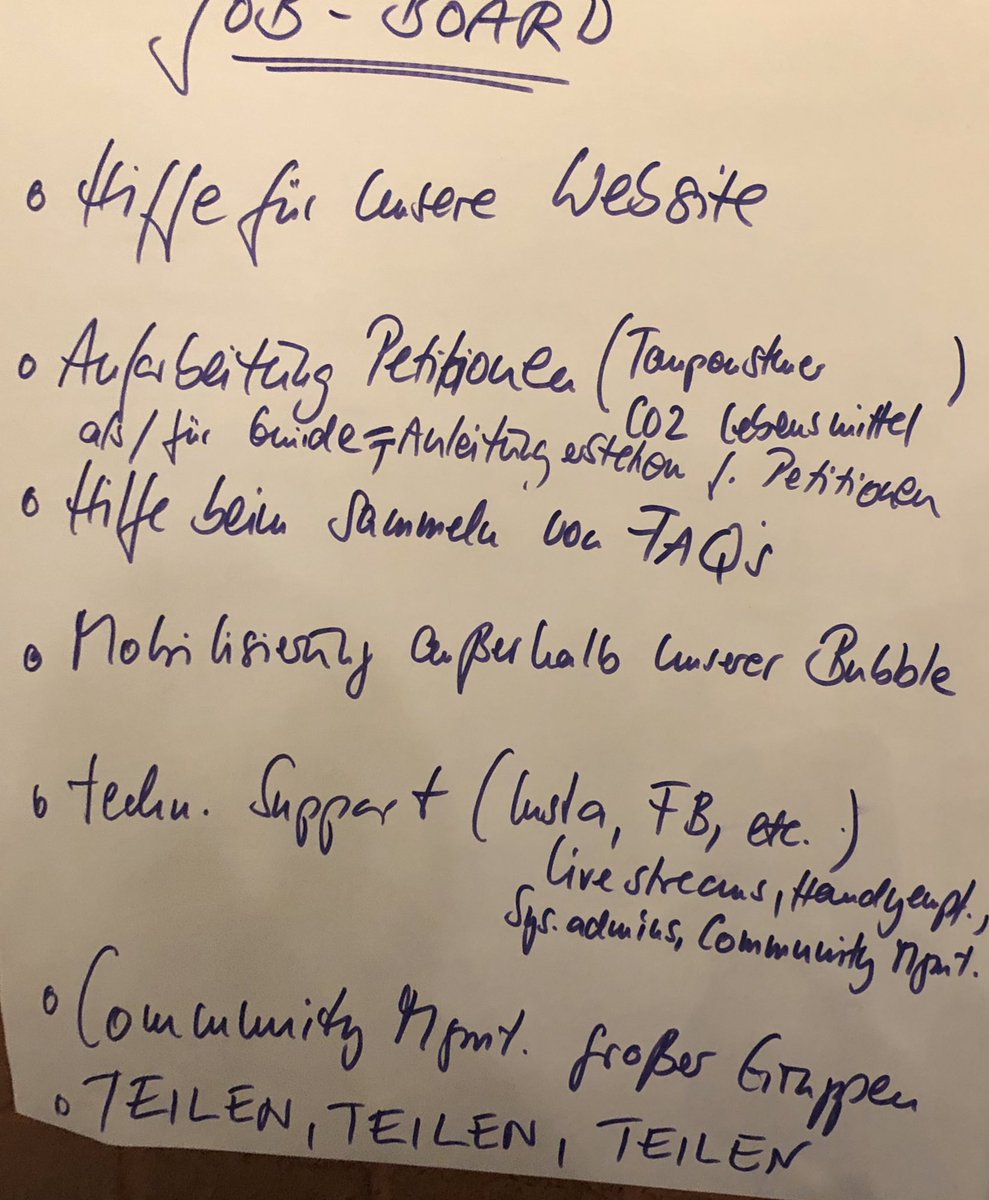 JOB-BOARD
Hilfe für unsere Website
Aufarbeitung Petitionen (Tamponsteuer
CO2 Lebensmittel)
als/für Guide = Anleitung erstellen f. Petitionen
Hilfe beim Sammeln von FAQ's
Mobilisierung außerhalb unserer Bubble
techn. Support (Insta, FB, etc.)
Livestreams, Handyempf.,
Sys.admins, Community Mgmt.
Community Mgmt. großer Gruppen
TEILEN, TEILEN, TEILEN